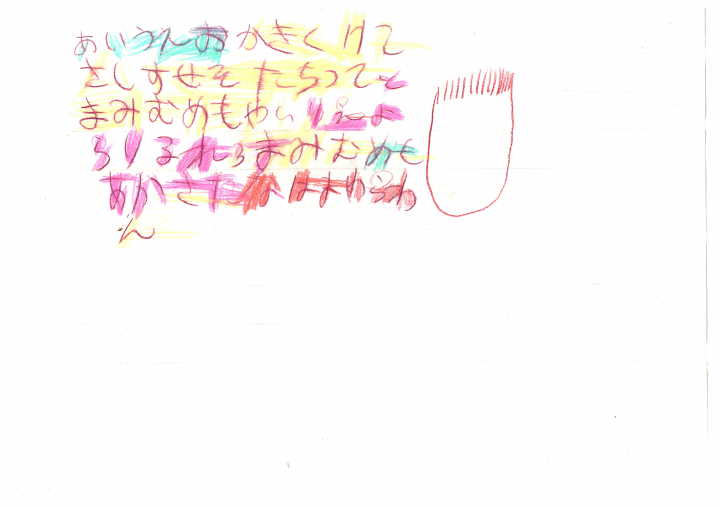 あいうえおかきくけこ
さしすせそたちつてと
まみむめもやいりえよ
らりるれろまみむめも
あかさたなはまやらわ
ん